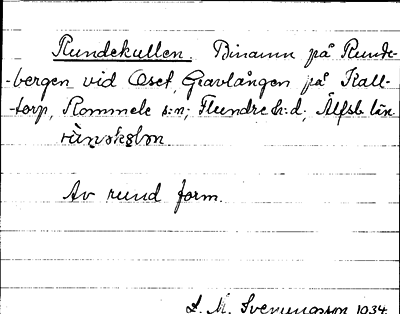 Rundekullen. Binamn på Runde-
-bergen vid Oset, Gravlången på Kall-
-torp, Rommele s:n; Flundre h:d; Älfsb. län
Av rund form.
S. M. Svenungsson 1934.